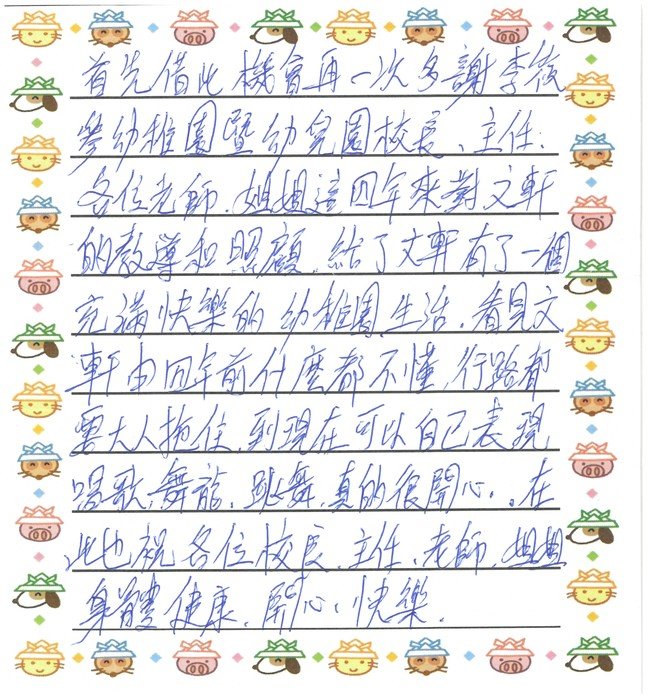 首先借此機會再一次多謝李筱
勞幼稚園暨幼兒園校長、主任、
各位老師、姐姐這四年來對文軒
的教導和照顧、給了文軒有了一個
充滿快樂的幼稚園生活、看見文
軒由四年前什麼都不懂、行路都
要大人拖住、到現在可以自己表現
唱歌、舞龍、跳舞、真的很開心。在
此也祝各位校長、主任、老師、姐姐
身體健康、開心、快樂。